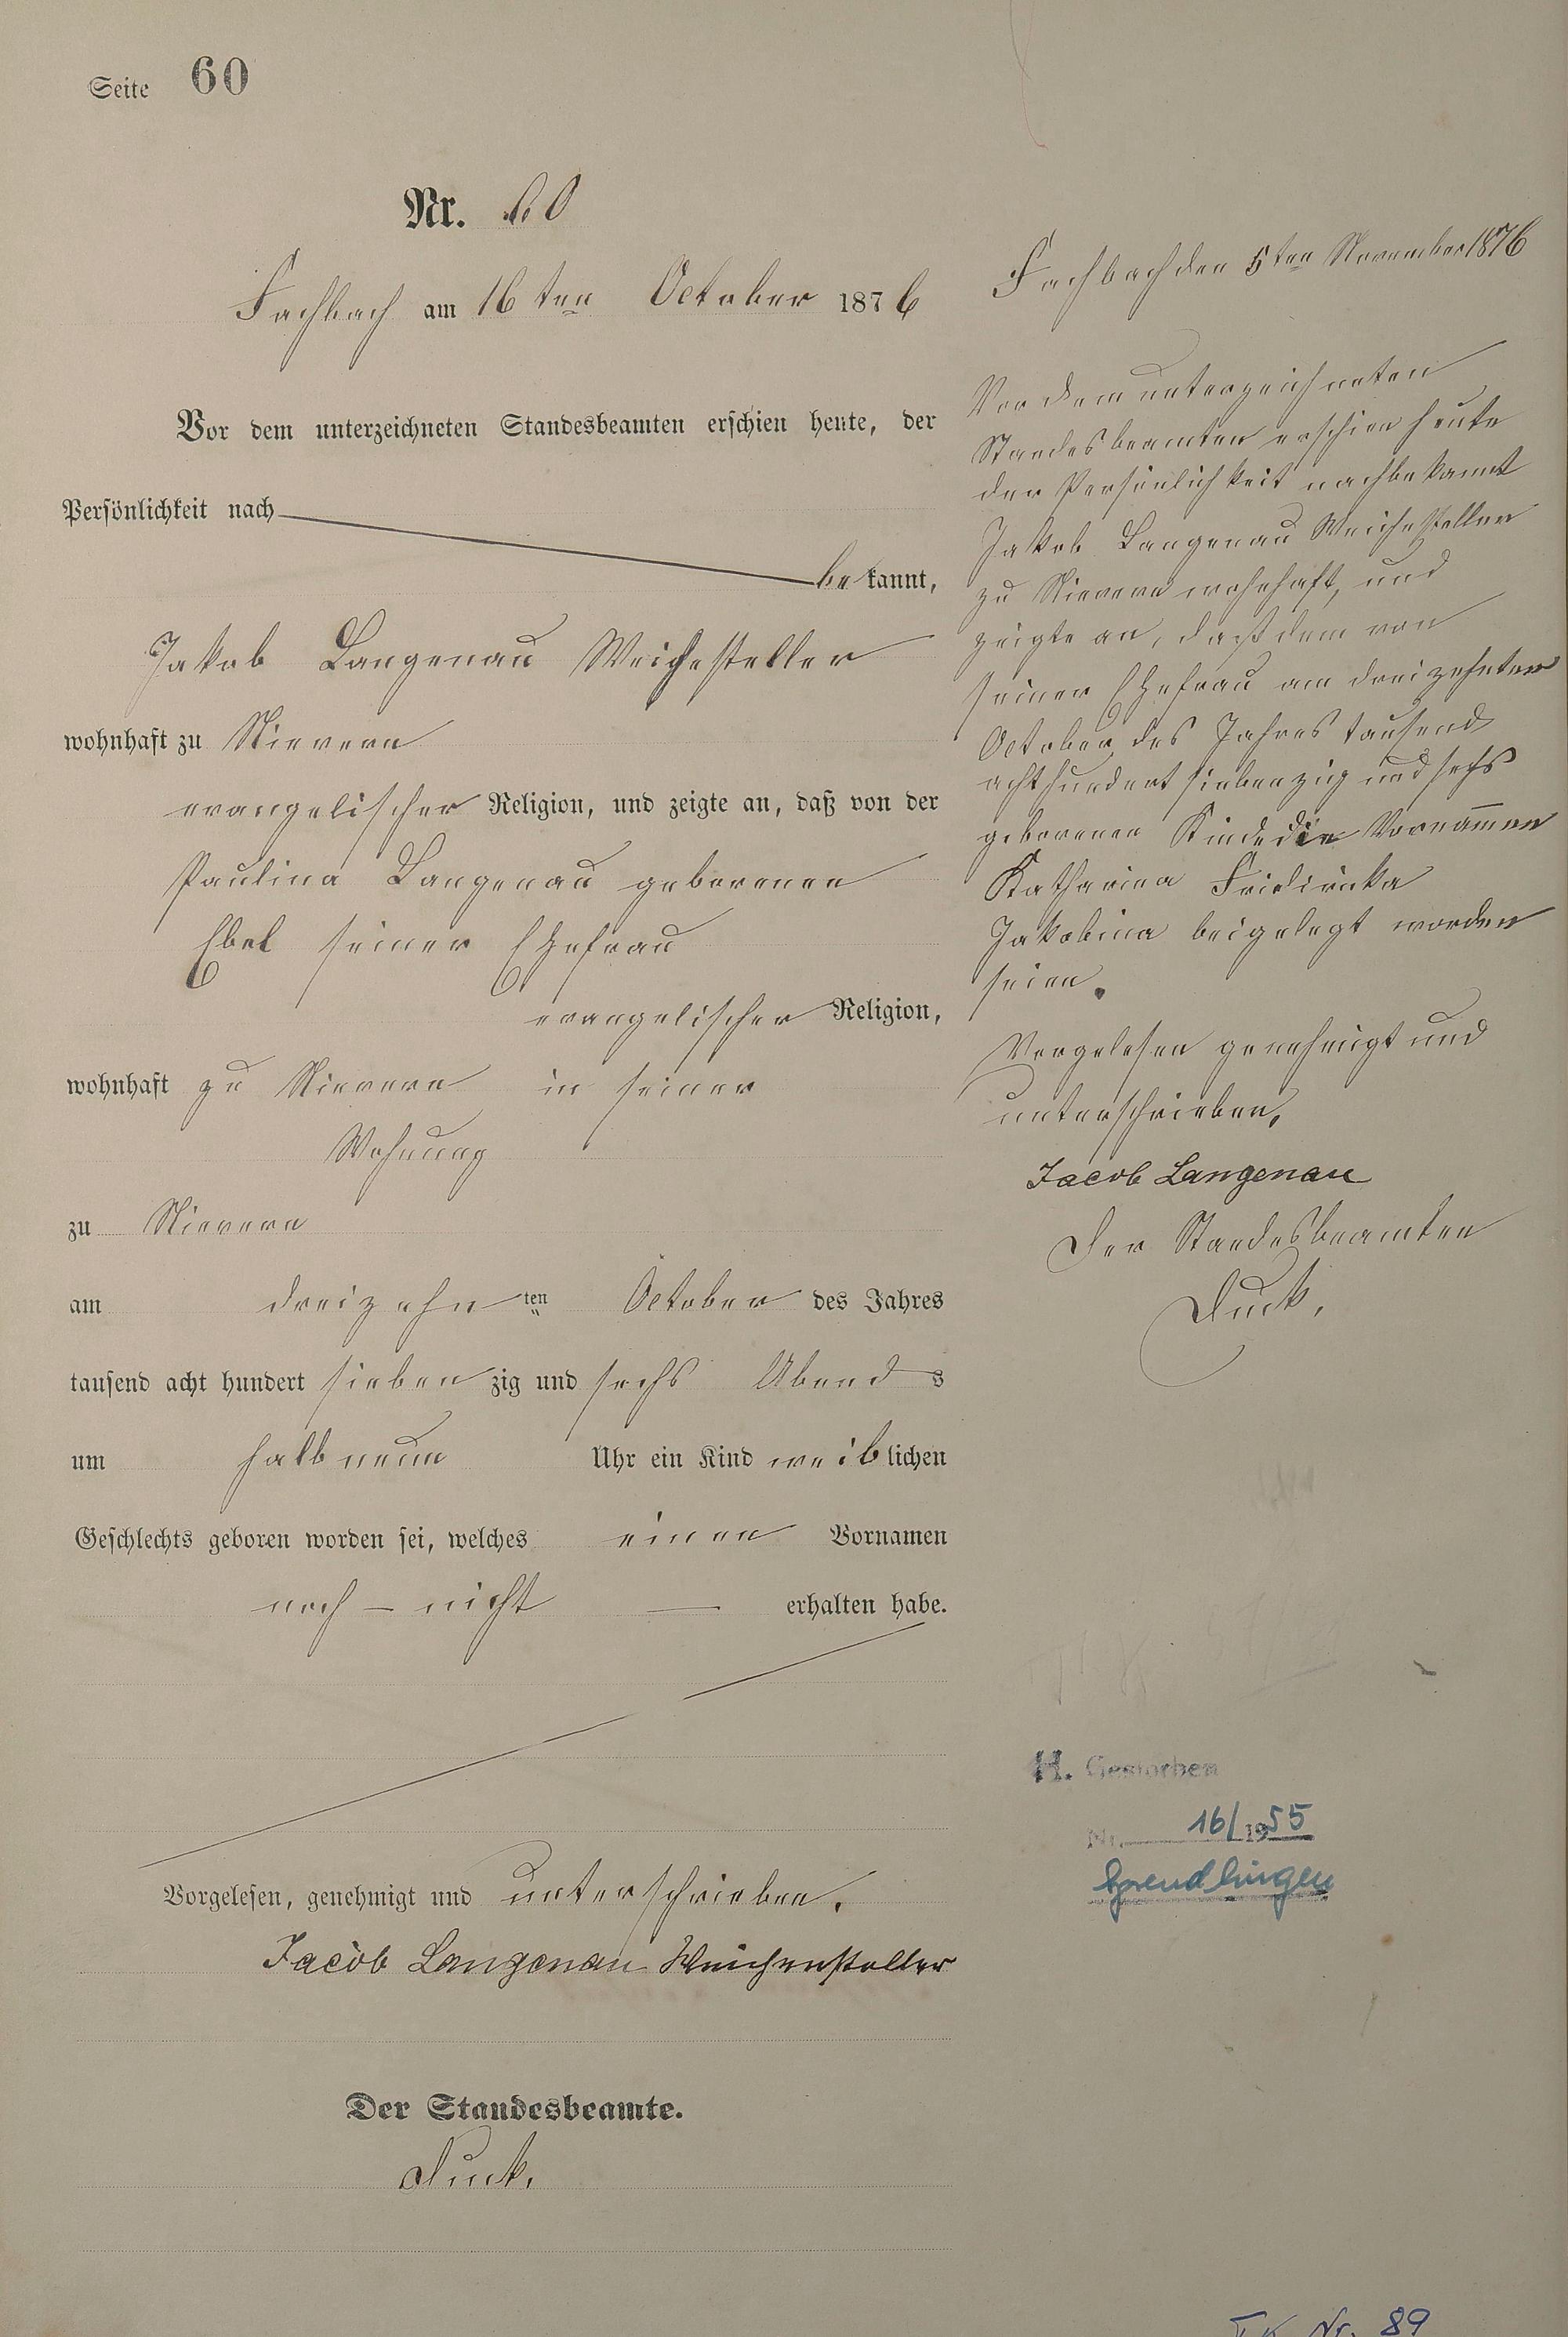 Seite 60
Nr. 60
Fachbach am 16ten October 1876
Vor dem unterzeichneten Standesbeamten erschien heute, der
Persönlichkeit nach
bekannt,
Jakob Langenau Weichesteller
wohnhaft zu Nievern
evangelischer Religion, und zeigte an, daß von der
Paulina Langenau geborenen
Ebel seiner Ehefrau
evangelischer Religion,
wohnhaft zu Nievern in seiner
Wohnung
zu Nievern
am dreizehnten October des Jahres
tausend acht hundert siebenzig und sechs Abends
um halb neun Uhr ein Kind weiblichen
Geschlechts geboren worden sei, welches einen Vornamen
noch — nicht — erhalten habe.
Vorgelesen, genehmigt und unterschrieben.
Jacob Langenau Weichensteller
Der Standesbeamte.
Duck.
Fachbach den 5ten November 1876
Vor dem unterzeichneten
Standesbeamten erschien heute
der Persönlichkeit nach bekannt
Jakob Langenau Weichesteller
zu Nievern wohnhaft, und
zeigte an, daß dem von
seiner Ehefrau am dreizehnten
October des Jahres tausend
achthundert siebenzig und sechs
geborenen Kinde die Vornammen
Katharina Fridirika
Jakobina beigelegt worden
seien.
Vorgelesen genehmigt und
unterschrieben.
Jacob Langenau
Der Standesbeamten
Duck.
H. Gestorben
Nr. 16/1955
Sprendlingen
Nr. 89